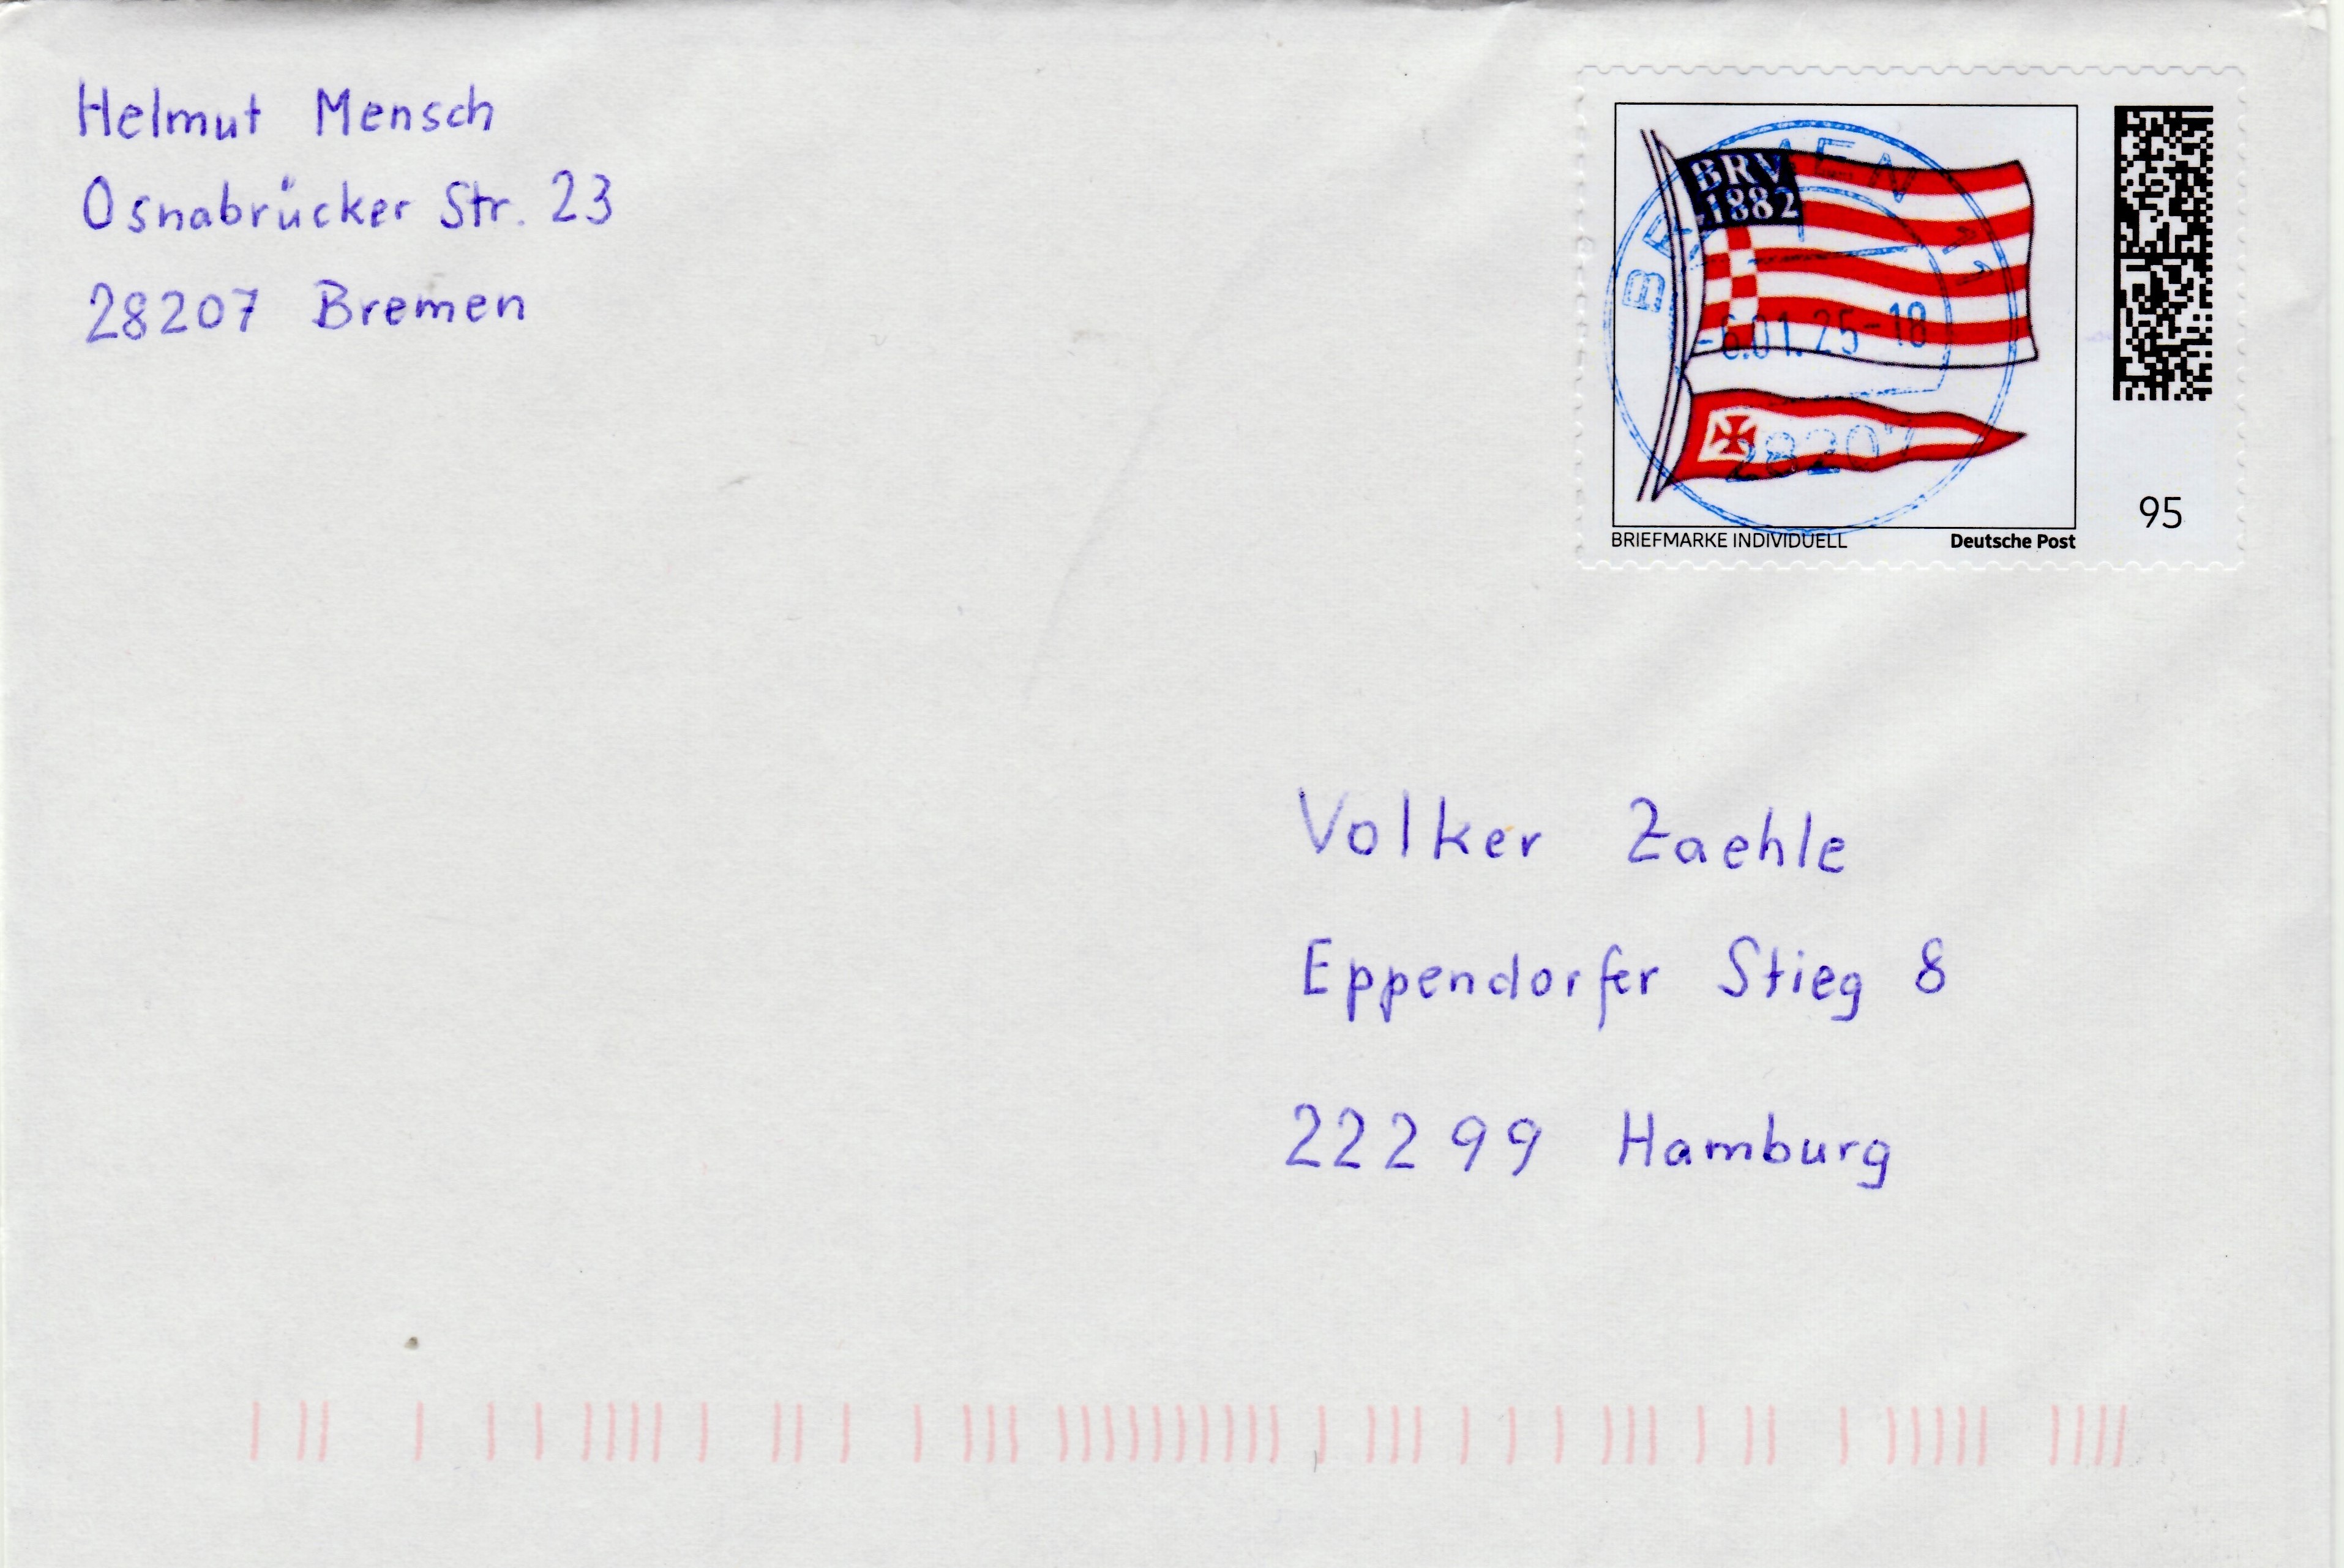 Helmut Mensch
Osnabrücker Str. 23
28207 Bremen
BRV
1882
BREMEN 11
-6.01.25-18
28207
95
BRIEFMARKE INDIVIDUELL
Deutsche Post
Volker Zaehle
Eppendorfer Stieg 8
22299 Hamburg